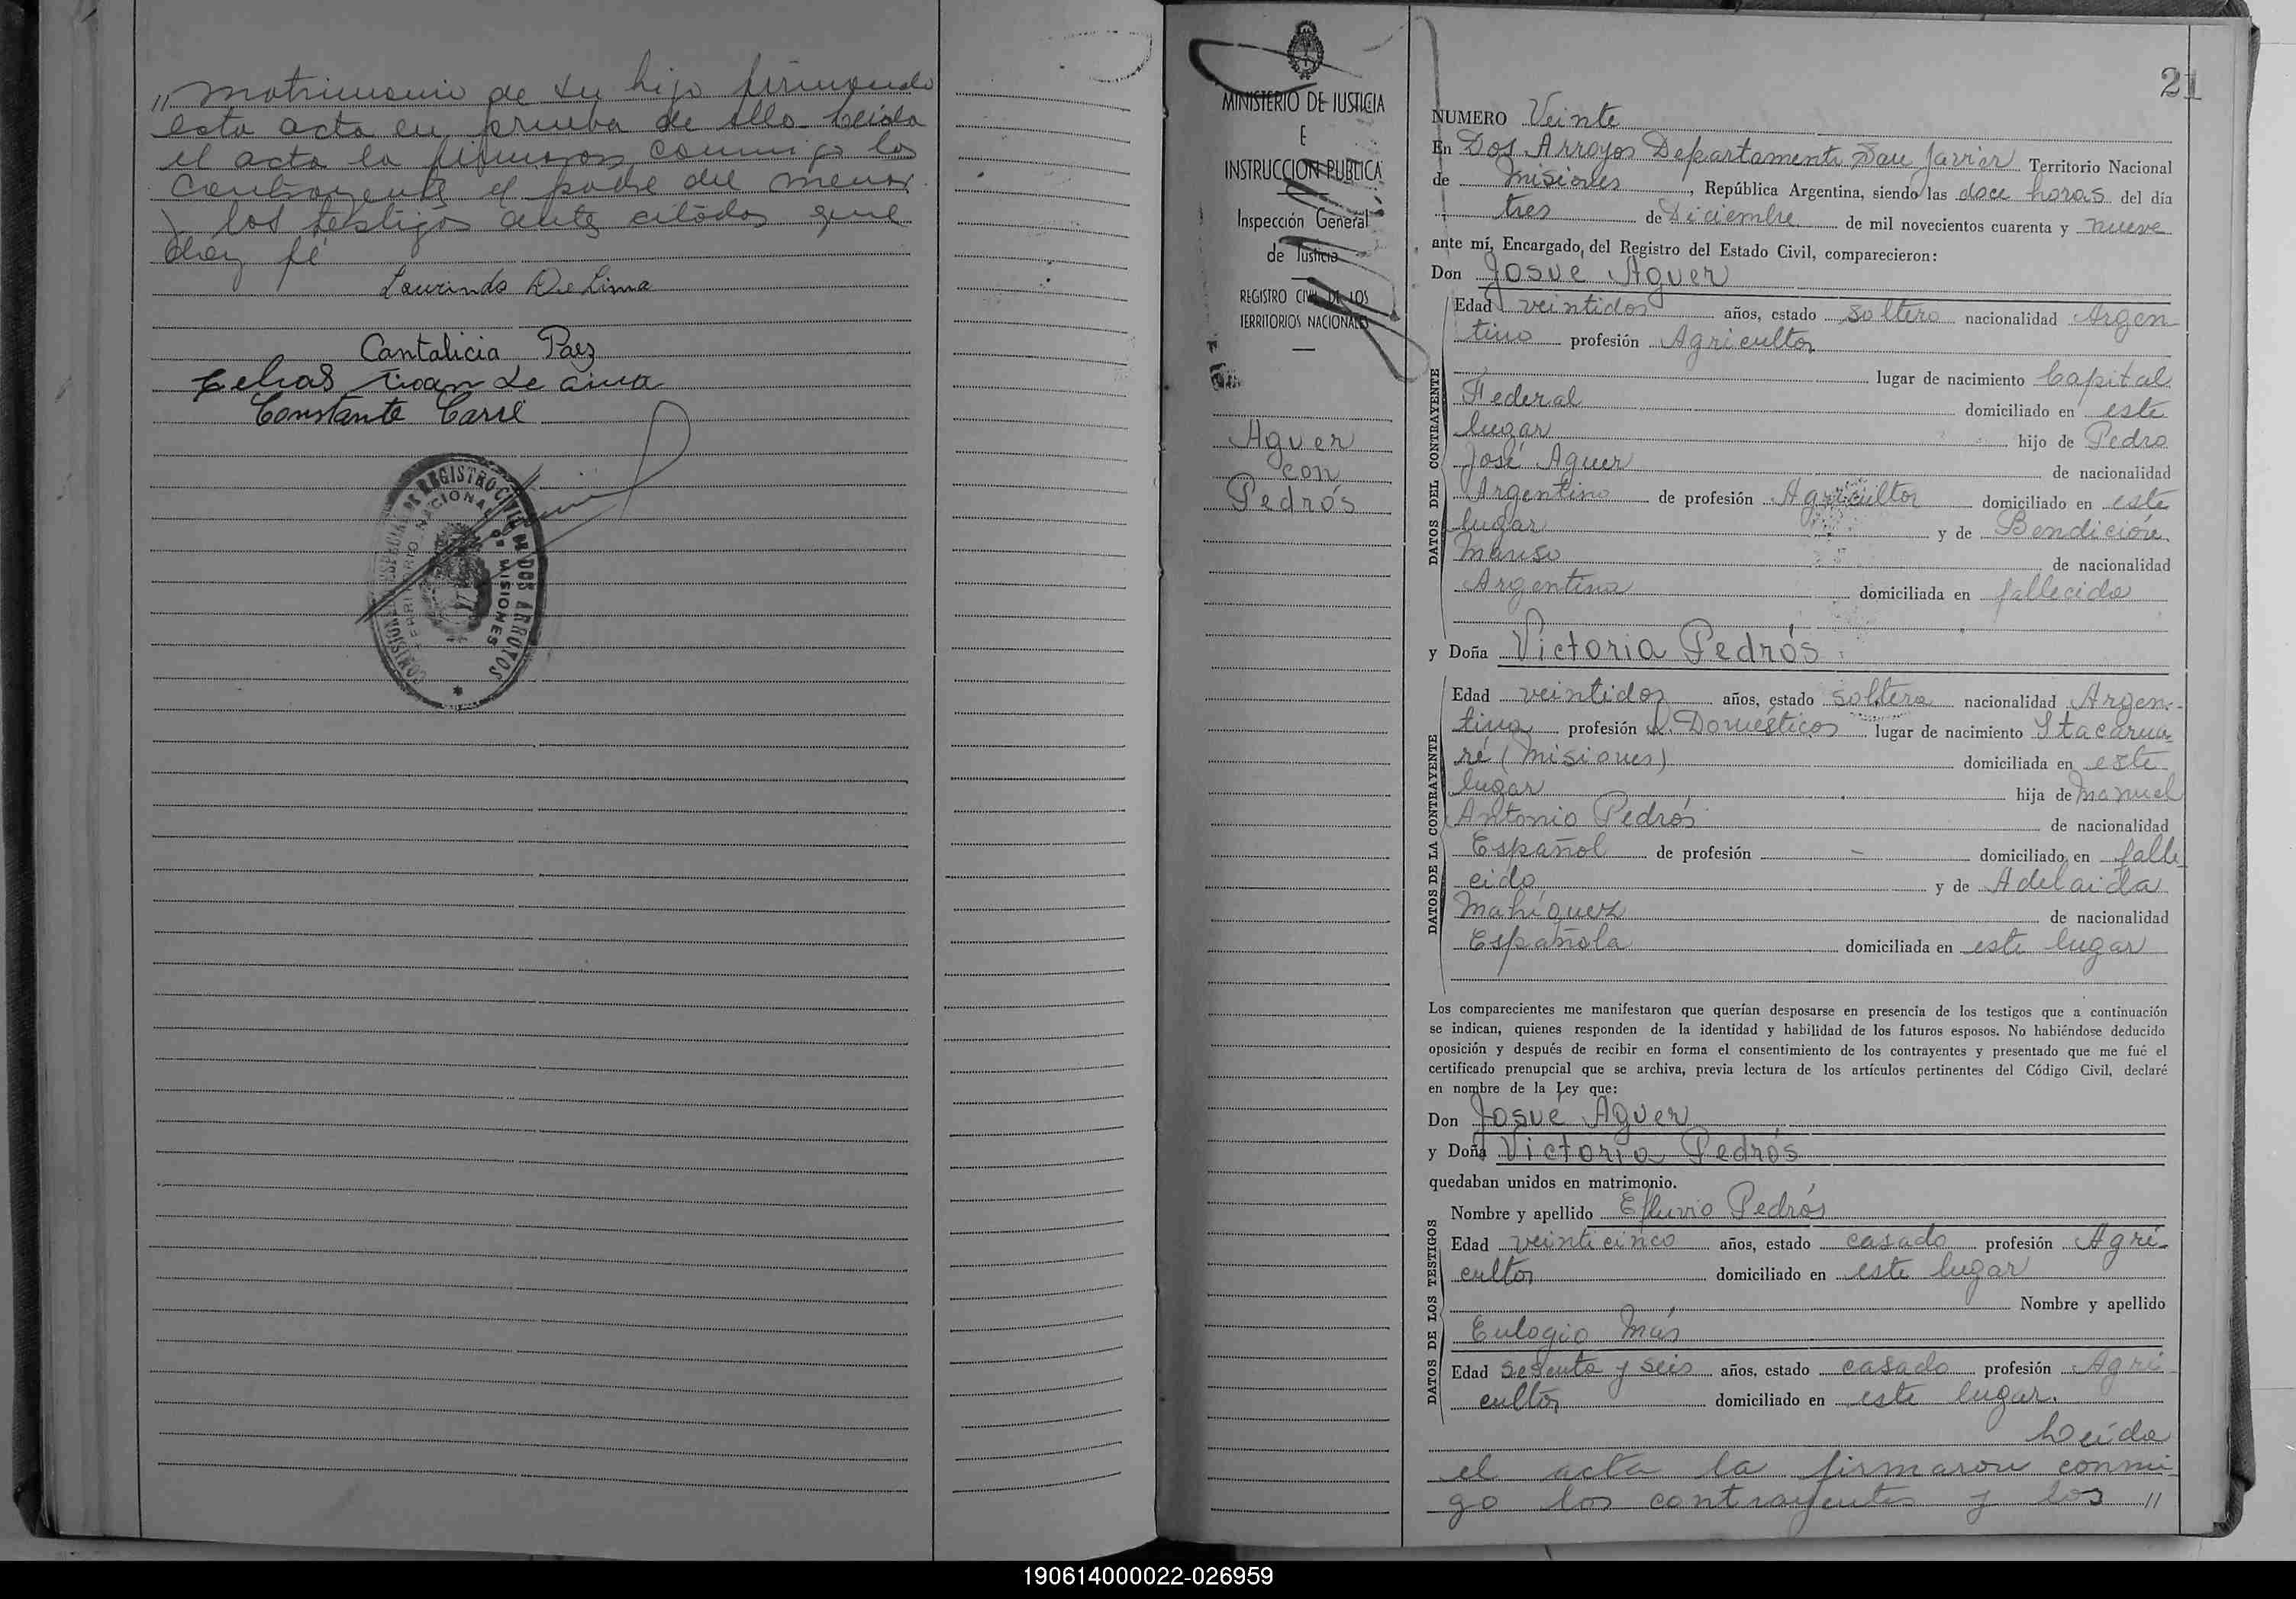 " matrimonio de su hijo firmando
esta acta en prueba de ello Leida
el acta la firmaron conmigo los
contrayente el padre del menor
y los testigos antes citados que
doy fé
Laurindo De Lima
Cantalicia Paez
Constante Carré
COMISION ESPECIAL DE REGISTRO CIVIL DE DOS ARROYOS
TERRITORIO NACIONAL DE MISIONES
MINISTERIO DE JUSTICIA
E
INSTRUCCION PUBLICA
Inspección General
de Justicia
REGISTRO CIVIL DE LOS
TERRITORIOS NACIONALES
Aguer
con
Pedrós
21
NUMERO Veinte
En Dos Arroyos Departamento San Javier Territorio Nacional
de Misiones, República Argentina, siendo las doce horas del día
tres de Diciembre de mil novecientos cuarenta y nueve
ante mí, Encargado del Registro del Estado Civil, comparecieron:
Don Josué Aguer
DATOS DEL CONTRAYENTE
Edad veintidos años, estado soltero nacionalidad Argen
tino profesión Agricultor
lugar de nacimiento Capital
Federal domiciliado en este
lugar hijo de Pedro
José Aguer de nacionalidad
Argentino de profesión Agricultor domiciliado en este
lugar y de Bendición
Manso de nacionalidad
Argentina domiciliada en fallecida
y Doña Victoria Pedrós
DATOS DE LA CONTRAYENTE
Edad veintidos años, estado soltera nacionalidad Argen-
tina profesión Q. Domésticos lugar de nacimiento Itacarua
ré (Misiones) domiciliada en este
lugar hija de Manuel
Antonio Pedrós de nacionalidad
Español de profesión - domiciliado en falle
cido y de Adelaida
Mahiquez de nacionalidad
Española domiciliada en este lugar
Los comparecientes me manifestaron que querían desposarse en presencia de los testigos que a continuación
se indican, quienes responden de la identidad y habilidad de los futuros esposos. No habiéndose deducido
oposición y después de recibir en forma el consentimiento de los contrayentes y presentado que me fué el
certificado prenupcial que se archiva, previa lectura de los artículos pertinentes del Código Civil, declaré
en nombre de la Ley que:
Don Josué Aguer
y Doña Victoria Pedrós
quedaban unidos en matrimonio.
DATOS DE LOS TESTIGOS
Nombre y apellido Efluvio Pedrós
Edad veinticinco años, estado casado profesión Agri-
cultor domiciliado en este lugar
Nombre y apellido
Eulogio Más
Edad sesenta y seis años, estado casado profesión Agri
cultor domiciliado en este lugar.
Leída
el acta la firmaron conmi
go los contrayentes y los "
190614000022-026959